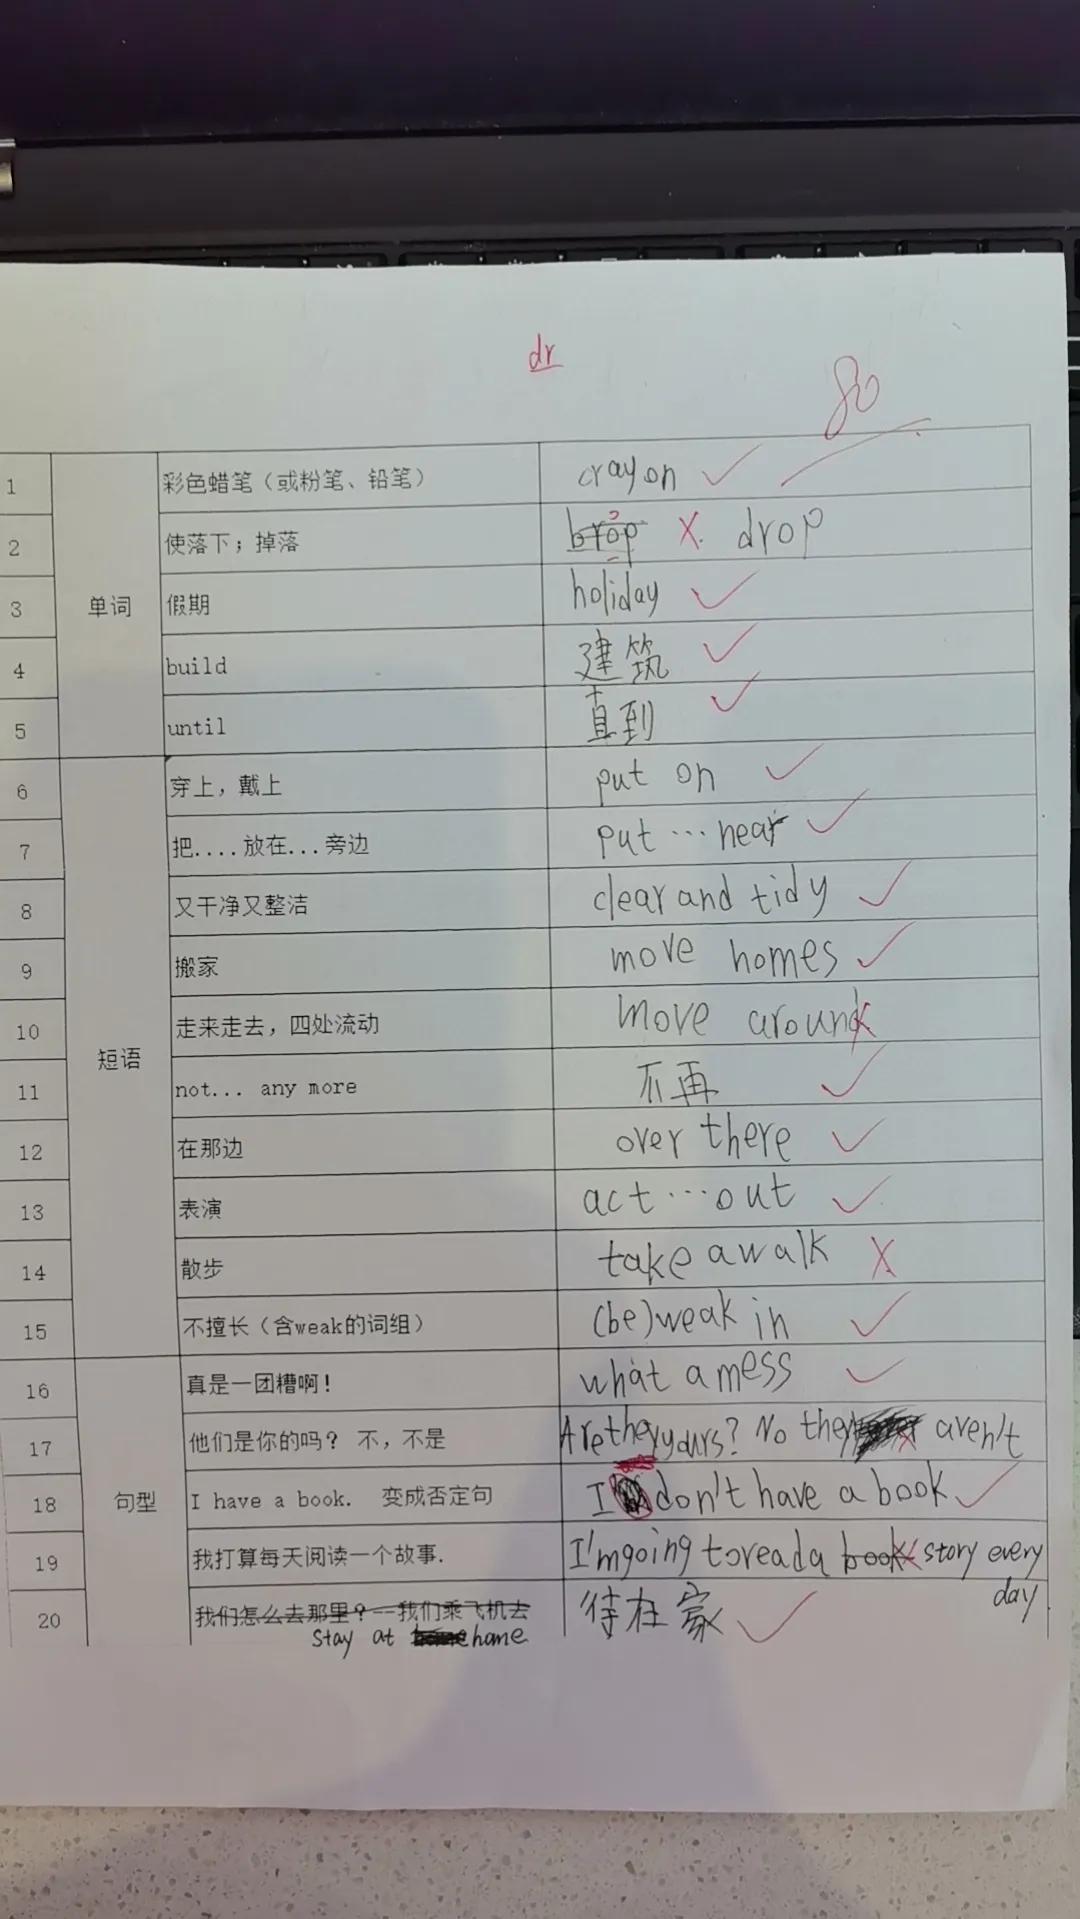 dr
80
1 单词 彩色蜡笔（或粉笔、铅笔） crayon
2 使落下；掉落 brop drop
3 假期 holiday
4 build 建筑
5 until 直到
6 短语 穿上，戴上 put on
7 把....放在...旁边 put ... near
8 又干净又整洁 clear and tidy
9 搬家 move homes
10 走来走去，四处流动 move around
11 not... any more 不再
12 在那边 over there
13 表演 act ... out
14 散步 take a walk
15 不擅长（含weak的词组） (be)weak in
16 句型 真是一团糟啊！ what a mess
17 他们是你的吗？ 不，不是 Are they yours? No they aren't
18 I have a book. 变成否定句 I don't have a book
19 我打算每天阅读一个故事. I'm going to read a book story every day
20 我们怎么去那里？--我们乘飞机去 待在家
stay at home